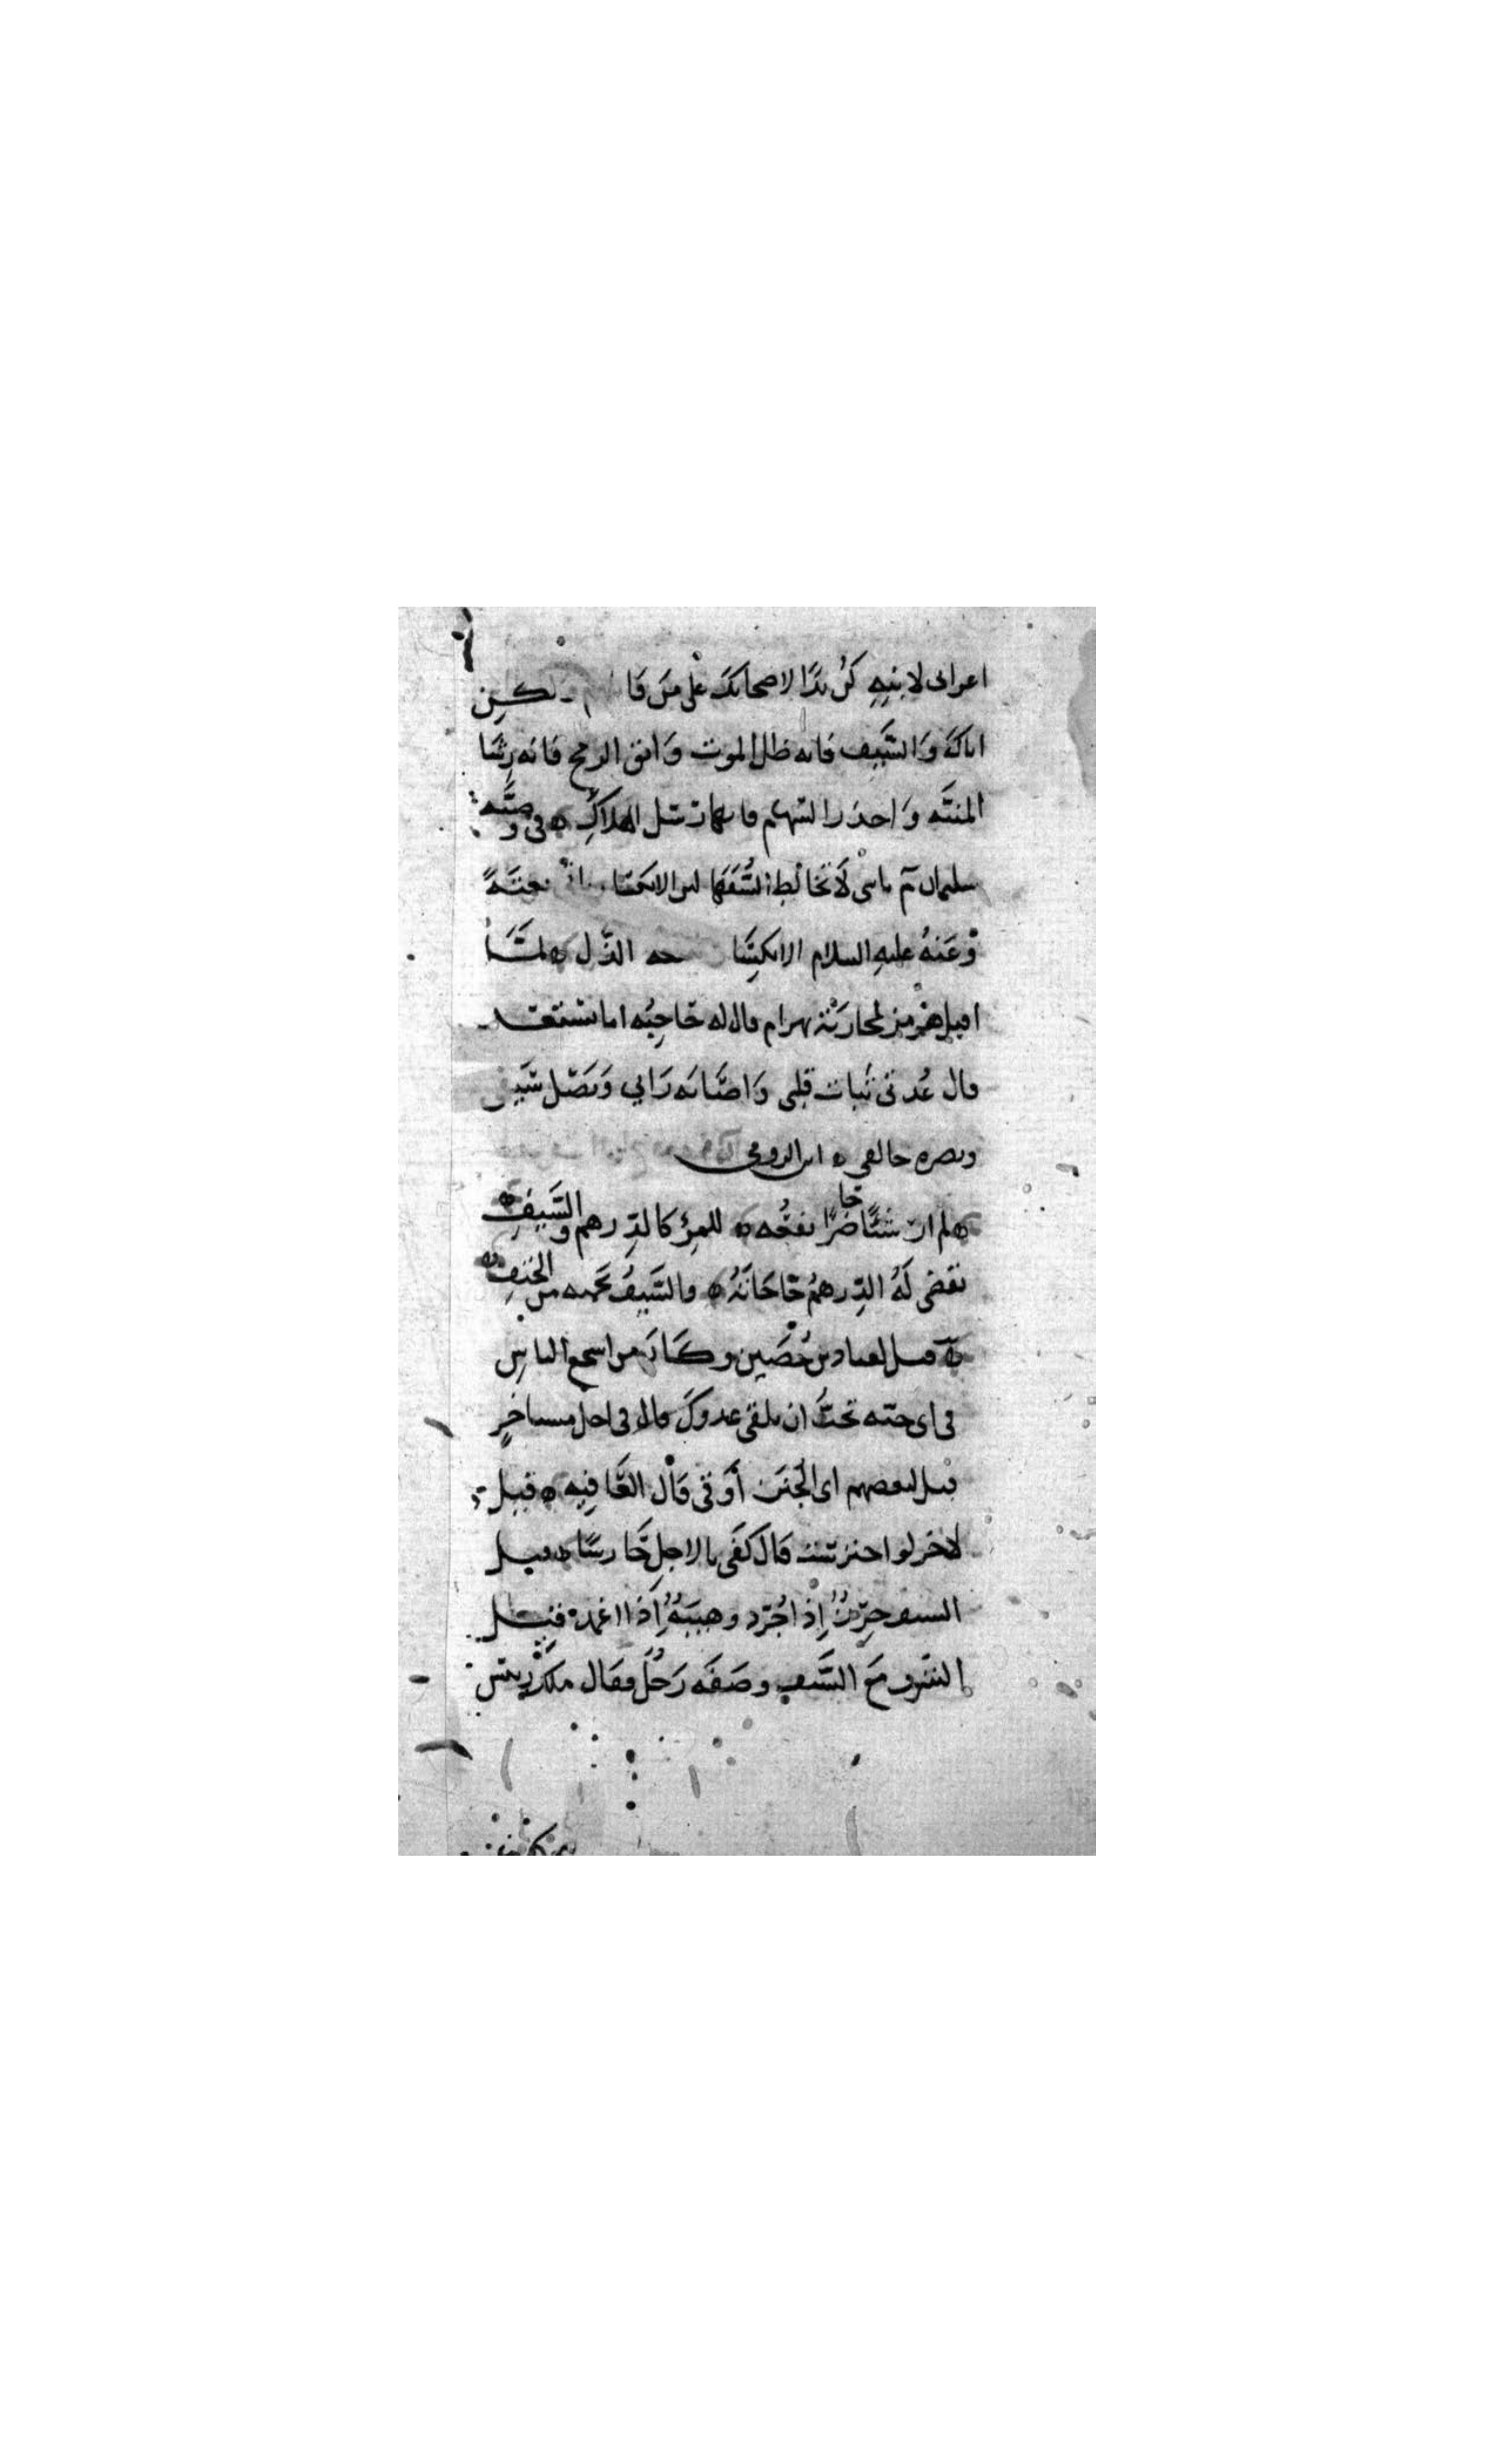 اعرابى لابنيه كن يدا لاصحابك على من قا
اياك وَالسَّيف فانه ظل الموت وَاتق الرمح فانه رِشا
المنيَّه وَاحذر السهام فانها رسل الهلاك ه فى وصيَّه
سليمان يابنى لَا تخالط السُّفَهَا
وَعَنهُ عليهِ السلام الذّل ه لمَّا
اقبل هرمز لمحاربَة بهرام قال له صَاحِبُه اما تستعد
قال عُدتى ثبات قلبى وَاصَابَه رَايى وَنَصل سَيفى
ونصره خالقى ه ابن الرومى
ه لم ار شيئًا حاضرًا نفعُه ه للمرْء كالدِّرهم والسَّيفِ ه
نقضى لَهُ الدِّرهمُ حَاجَاتهُ ه والسَّيفُ يحميه من الحَيفِ ه
ه قيل لعباد بن حُصَين وكانَ من اشجع الناسِ
فى اى جنه تحبُّ ان يلقى عدوكَ قال فى اجل مستاخرٍ
قيل لبعضهم اى الجُنَن أَوقى قَال العَافِيه ه قيل
لاخر لو احترست قَال كفَى بالاجلِ حَارسًا ه قيل
السيف حِرزٌ اِذا جُرّد وهيبَةٌ اِذا اغمد ه قيل
الشرف مَع السَّيف وصَفَه رَجُل فقال